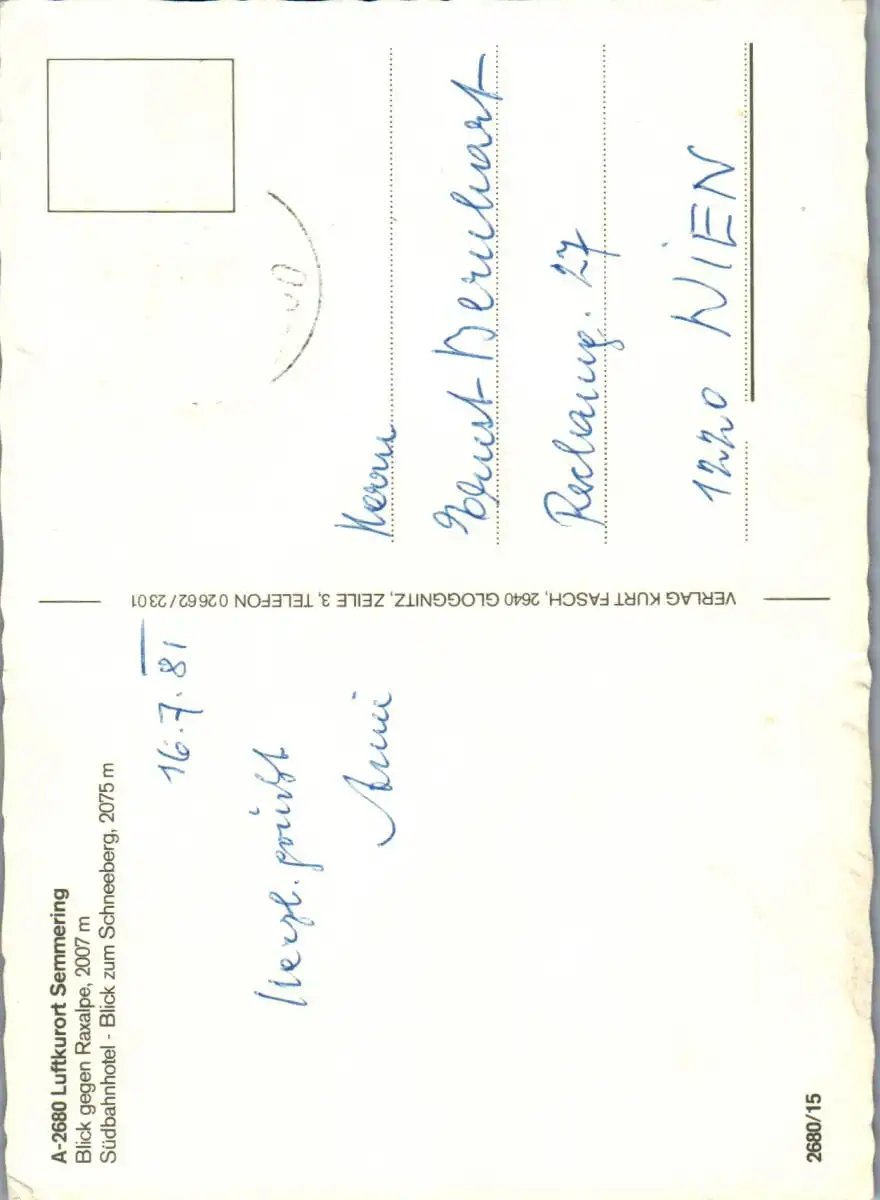 A-2680 Luftkurort Semmering
Blick gegen Raxalpe, 2007 m
Südbahnhotel - Blick zum Schneeberg, 2075 m
16.7.81
Herzl. grüßt
Anni
2680/15
VERLAG KURT FASCH, 2640 GLOGGNITZ, ZEILE 3, TELEFON 0 26 62 / 23 01
Herrn
Ernst Bernhart
27
1220 WIEN